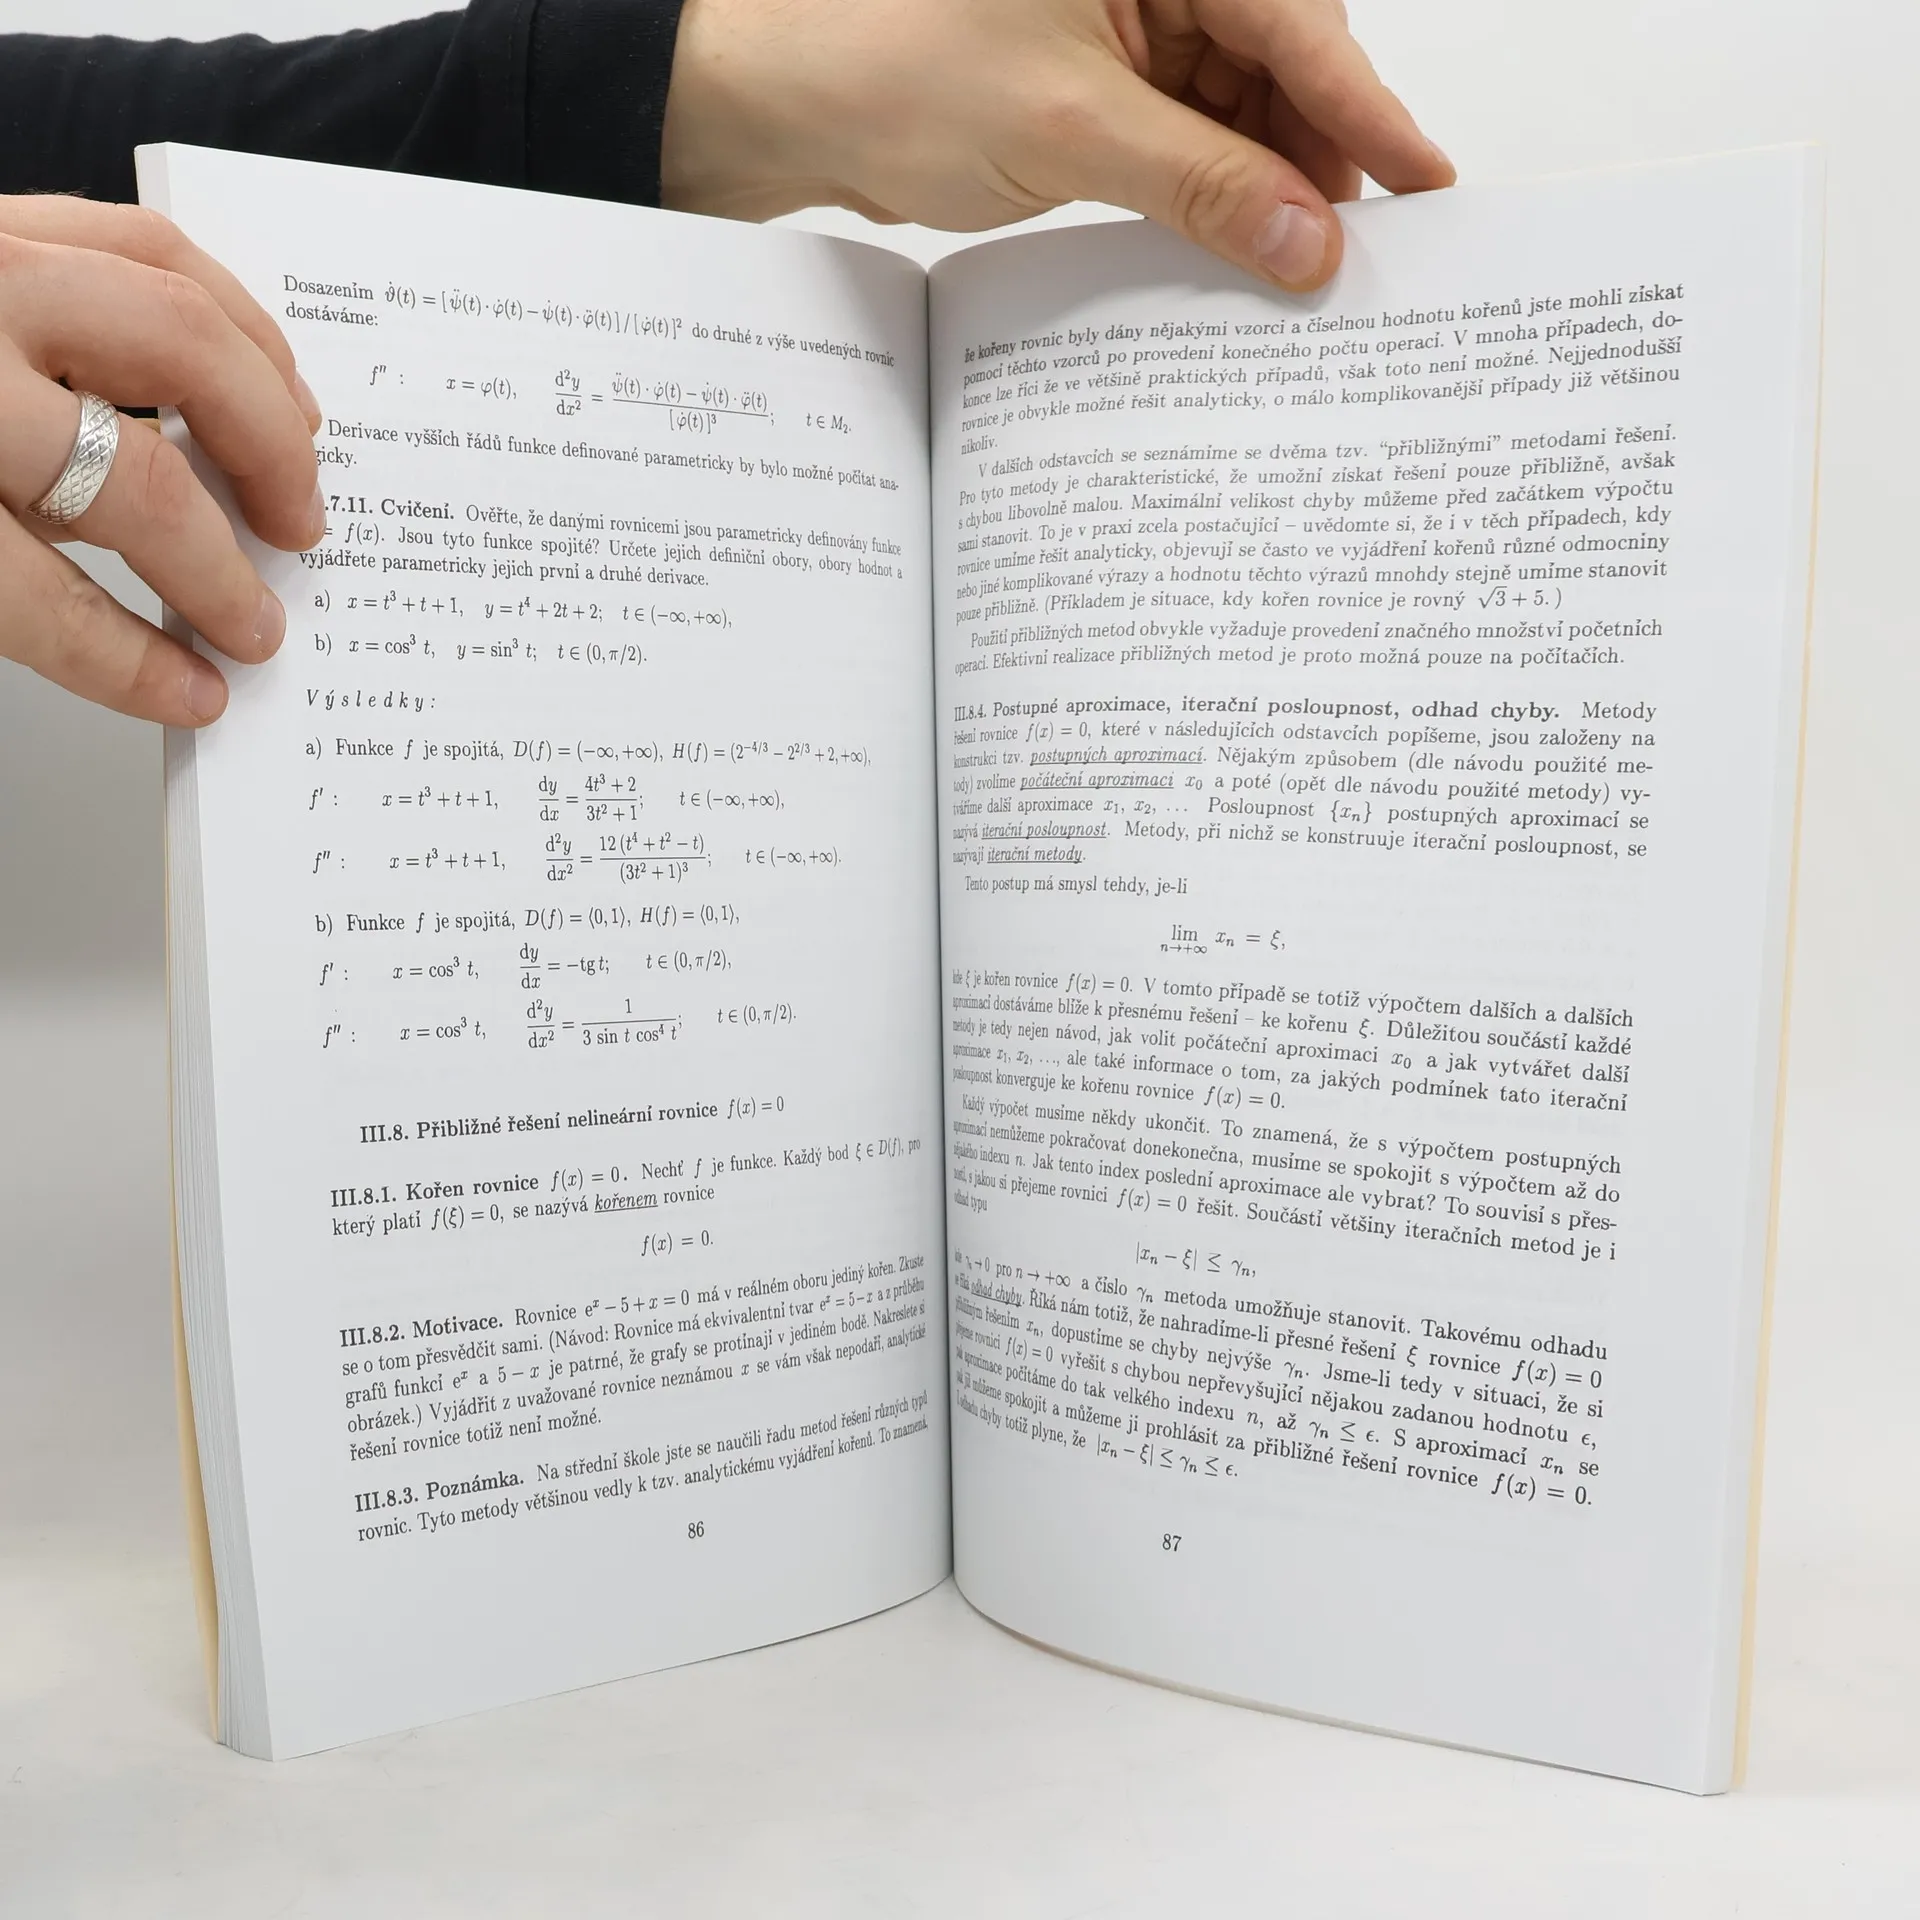 Dosazením ϑ̇(t) = [ψ̈(t)·φ̇(t) − ψ̇(t)·φ̈(t)] / [φ̇(t)]² do druhé z výše uvedených rovnic
dostáváme:
f″ : x = φ(t), d²y/dx² = (ψ̈(t)·φ̇(t) − ψ̇(t)·φ̈(t))/[φ̇(t)]³; t ∈ M₂.
Derivace vyšších řádů funkce definované parametricky by bylo možné počítat ana-
gicky.
.7.11. Cvičení. Ověřte, že danými rovnicemi jsou parametricky definovány funkce
= f(x). Jsou tyto funkce spojité? Určete jejich definiční obory, obory hodnot a
vyjádřete parametricky jejich první a druhé derivace.
a) x = t³ + t + 1, y = t⁴ + 2t + 2; t ∈ (−∞, +∞),
b) x = cos³ t, y = sin³ t; t ∈ ⟨0, π/2⟩.
Výsledky:
a) Funkce f je spojitá, D(f) = (−∞, +∞), H(f) = (2^{−4/3} − 2^{2/3} + 2, +∞),
f′ : x = t³ + t + 1, dy/dx = (4t³ + 2)/(3t² + 1); t ∈ (−∞, +∞),
f″ : x = t³ + t + 1, d²y/dx² = 12(t⁴ + t² − t)/(3t² + 1)³; t ∈ (−∞, +∞).
b) Funkce f je spojitá, D(f) = ⟨0, 1⟩, H(f) = ⟨0, 1⟩,
f′ : x = cos³ t, dy/dx = −tg t; t ∈ (0, π/2),
f″ : x = cos³ t, d²y/dx² = 1/(3 sin t cos⁴ t); t ∈ (0, π/2).
III.8. Přibližné řešení nelineární rovnice f(x) = 0
III.8.1. Kořen rovnice f(x) = 0. Nechť f je funkce. Každý bod ξ ∈ D(f), pro
který platí f(ξ) = 0, se nazývá kořenem rovnice
f(x) = 0.
III.8.2. Motivace. Rovnice eˣ − 5 + x = 0 má v reálném oboru jediný kořen. Zkuste
se o tom přesvědčit sami. (Návod: Rovnice má ekvivalentní tvar eˣ = 5 − x a z průběhu
grafů funkcí eˣ a 5 − x je patrné, že grafy se protínají v jediném bodě. Nakreslete si
obrázek.) Vyjádřit z uvažované rovnice neznámou x se vám však nepodaří, analytické
řešení rovnice totiž není možné.
III.8.3. Poznámka. Na střední škole jste se naučili řadu metod řešení různých typů
rovnic. Tyto metody většinou vedly k tzv. analytickému vyjádření kořenů. To znamená,
86
že kořeny rovnic byly dány nějakými vzorci a číselnou hodnotu kořenů jste mohli získat
pomocí těchto vzorců po provedení konečného počtu operací. V mnoha případech, do-
konce lze říci že ve většině praktických případů, však toto není možné. Nejjednodušší
rovnice je obvykle možné řešit analyticky, o málo komplikovanější případy již většinou
nikoliv.
V dalších odstavcích se seznámíme se dvěma tzv. “přibližnými” metodami řešení.
Pro tyto metody je charakteristické, že umožní získat řešení pouze přibližně, avšak
s chybou libovolně malou. Maximální velikost chyby můžeme před začátkem výpočtu
sami stanovit. To je v praxi zcela postačující – uvědomte si, že i v těch případech, kdy
rovnice umíme řešit analyticky, objevují se často ve vyjádření kořenů různé odmocniny
nebo jiné komplikované výrazy a hodnotu těchto výrazů mnohdy stejně umíme stanovit
pouze přibližně. (Příkladem je situace, kdy kořen rovnice je rovný √3 + 5.)
Použití přibližných metod obvykle vyžaduje provedení značného množství početních
operací. Efektivní realizace přibližných metod je proto možná pouze na počítačích.
III.8.4. Postupné aproximace, iterační posloupnost, odhad chyby. Metody
řešení rovnice f(x) = 0, které v následujících odstavcích popíšeme, jsou založeny na
konstrukci tzv. postupných aproximací. Nějakým způsobem (dle návodu použité me-
tody) zvolíme počáteční aproximaci x₀ a poté (opět dle návodu použité metody) vy-
tváříme další aproximace x₁, x₂, … Posloupnost {xₙ} postupných aproximací se
nazývá iterační posloupnost. Metody, při nichž se konstruuje iterační posloupnost, se
nazývají iterační metody.
Tento postup má smysl tehdy, je-li
lim n→+∞ xₙ = ξ,
kde ξ je kořen rovnice f(x) = 0. V tomto případě se totiž výpočtem dalších a dalších
aproximací dostáváme blíže k přesnému řešení – ke kořenu ξ. Důležitou součástí každé
metody je tedy nejen návod, jak volit počáteční aproximaci x₀ a jak vytvářet další
aproximace x₁, x₂, …, ale také informace o tom, za jakých podmínek tato iterační
posloupnost konverguje ke kořenu rovnice f(x) = 0.
Každý výpočet musíme někdy ukončit. To znamená, že s výpočtem postupných
aproximací nemůžeme pokračovat donekonečna, musíme se spokojit s výpočtem až do
nějakého indexu n. Jak tento index poslední aproximace ale vybrat? To souvisí s přes-
ností, s jakou si přejeme rovnici f(x) = 0 řešit. Součástí většiny iteračních metod je i
odhad typu
|xₙ − ξ| ≤ γₙ,
kde γₙ → 0 pro n → +∞ a číslo γₙ metoda umožňuje stanovit. Takovému odhadu
se říká odhad chyby. Říká nám totiž, že nahradíme-li přesné řešení ξ rovnice f(x) = 0
přibližným řešením xₙ, dopustíme se chyby nejvýše γₙ. Jsme-li tedy v situaci, že si
přejeme rovnici f(x) = 0 vyřešit s chybou nepřevyšující nějakou zadanou hodnotu ϵ,
pak aproximace počítáme do tak velkého indexu n, až γₙ ≤ ϵ. S aproximací xₙ se
pak již můžeme spokojit a můžeme ji prohlásit za přibližné řešení rovnice f(x) = 0.
Z odhadu chyby totiž plyne, že |xₙ − ξ| ≤ γₙ ≤ ϵ.
87